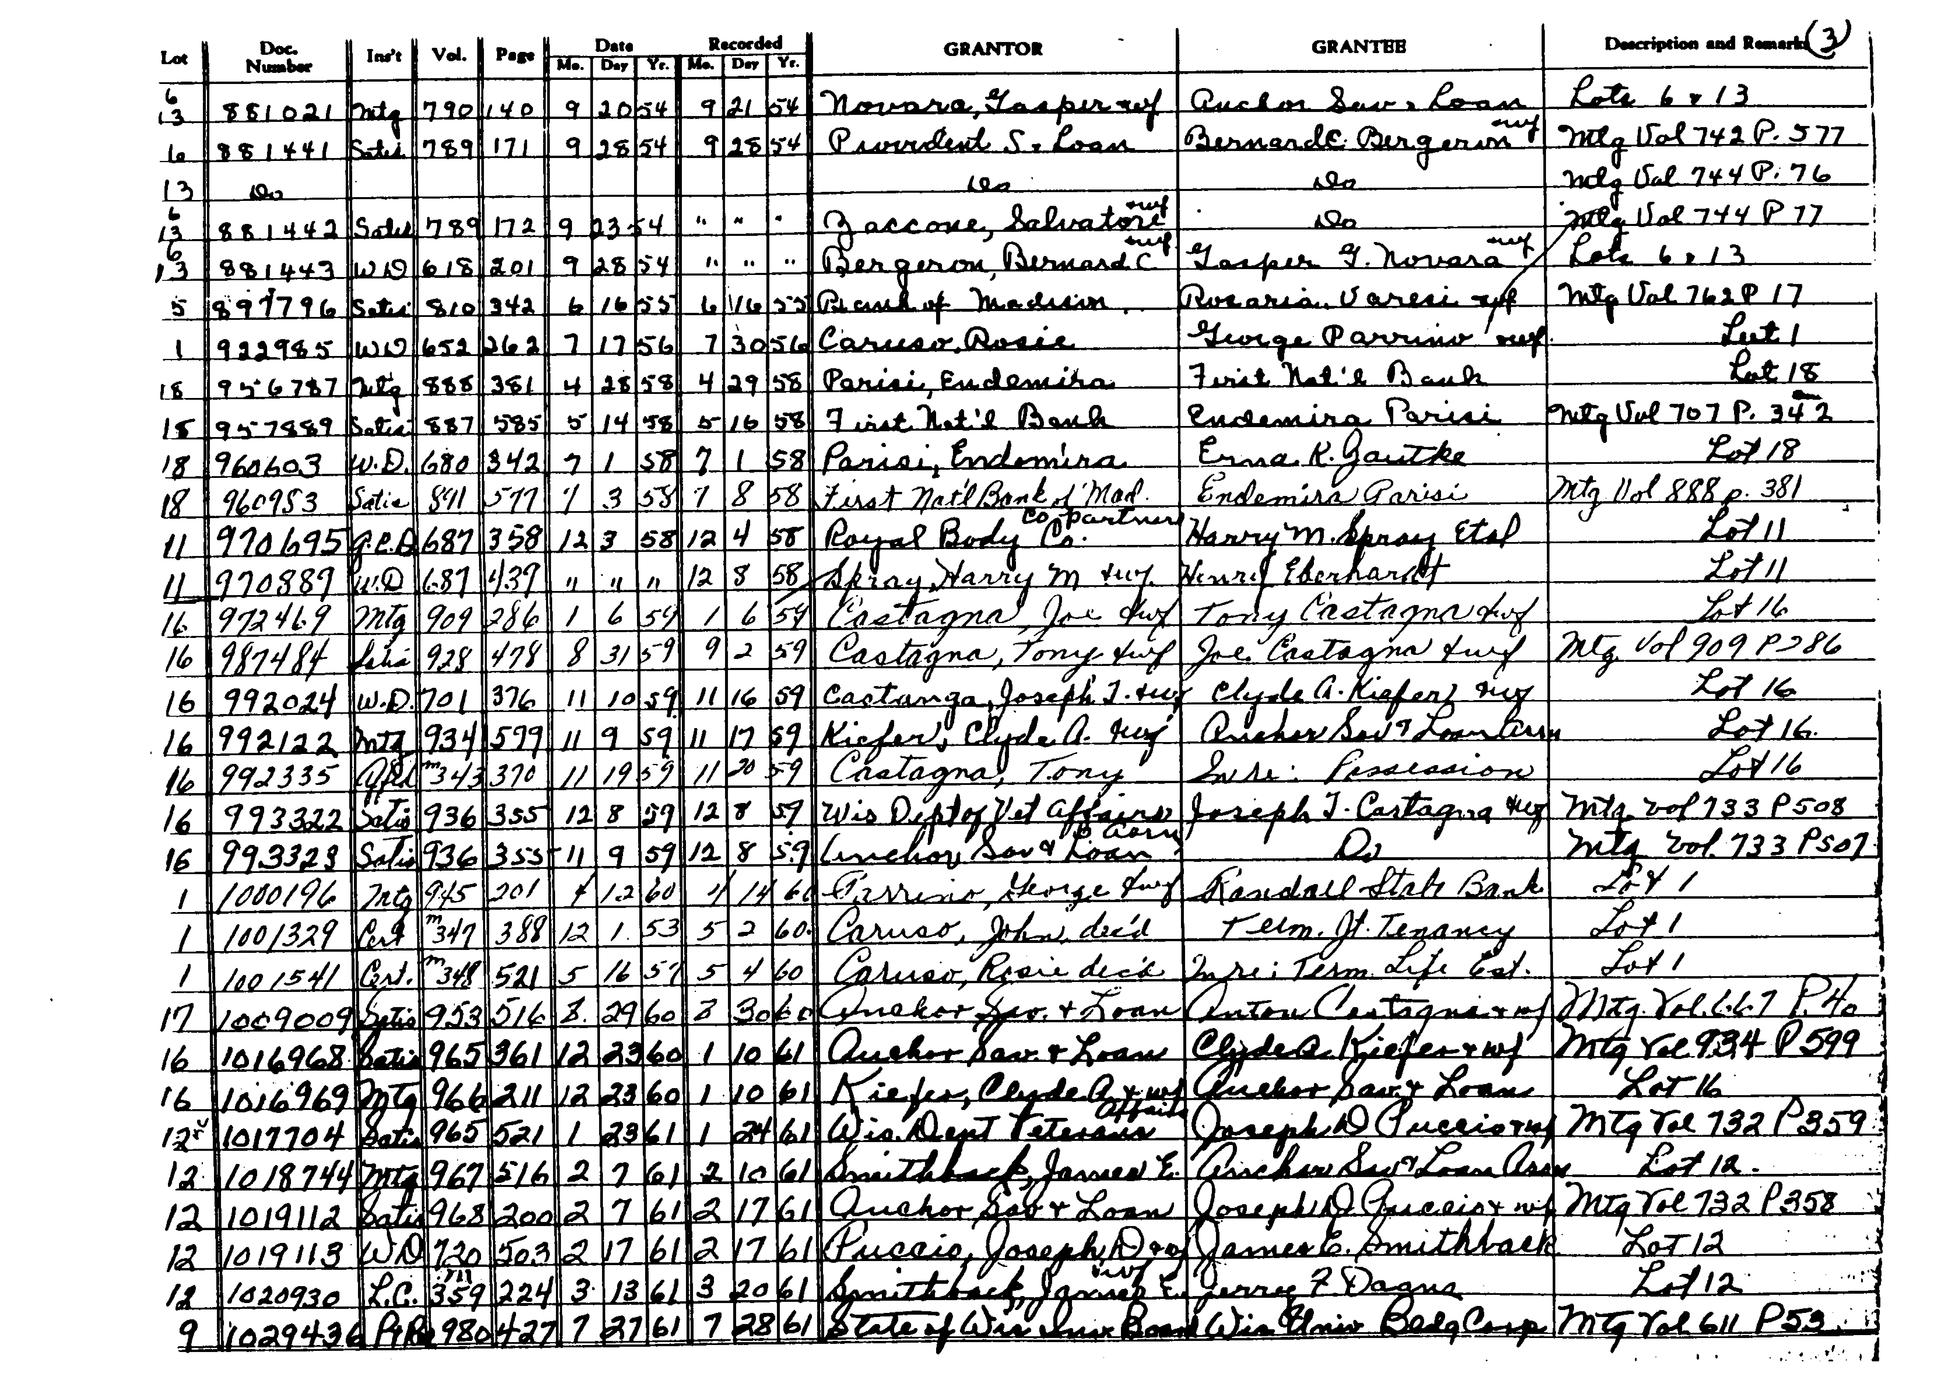 (3)
Lot Doc. Number Ins't Vol. Page Date Mo. Day Yr. Recorded Mo. Day Yr. GRANTOR GRANTEE Description and Remarks
6 13 881021 Mtg 790 140 9 20 54 9 21 54 Novara, Gasper & wf Anchor Sav & Loan Lots 6 & 13
6 881441 Satis 789 171 9 28 54 9 28 54 Provident S. & Loan Bernard C. Bergeron & wf Mtg Vol 742 P. 577
13 Do Do Do Mtg Vol 744 P. 76
6 13 881442 Satis 789 172 9 23 54 " " " Zaccone, Salvatore & wf Do Mtg Vol 744 P 77
6 13 881443 W D 618 201 9 28 54 " " " Bergeron, Bernard C & wf Gasper G. Novara & wf Lots 6 & 13
5 897796 Satis 810 342 6 16 55 6 16 55 Bank of Madison Rosario Varesi & wf Mtg Vol 762 P 17
1 922985 WD 652 262 7 17 56 7 30 56 Caruso, Rosie George Parrino & wf Lot 1
18 956787 Mtg 888 381 4 28 58 4 29 58 Parisi, Endemira First Nat'l Bank Lot 18
18 957889 Satis 887 585 5 14 58 5 16 58 First Nat'l Bank Endemira Parisi Mtg Vol 707 P. 342
18 960603 W.D. 680 342 7 1 58 7 1 58 Parisi, Endemira Erna K. Gautke Lot 18
18 960953 Satis 891 577 7 3 58 7 8 58 First Nat'l Bank of Mad. Endemira Parisi Mtg Vol 888 p. 381
11 970695 Q.C.D 687 358 12 3 58 12 4 58 Royal Body Co. co-partners Harry M. Spray Etal Lot 11
11 970889 W.D 687 439 " " " 12 8 58 Spray, Harry M & wf. Henry Eberhardt Lot 11
16 972469 Mtg 909 286 1 6 59 1 6 59 Castagna, Joe & wf Tony Castagna & wf Lot 16
16 987484 Satis 928 478 8 31 59 9 2 59 Castagna, Tony & wf Joe Castagna & wf Mtg. Vol 909 P 286
16 992024 W.D. 701 376 11 10 59 11 16 59 Castanga, Joseph T. & wf Clyde A. Kiefer & wf Lot 16
16 992122 Mtg 934 599 11 9 59 11 17 59 Kiefer, Clyde A. & wf Anchor Sav & Loan Assn Lot 16.
16 992335 Afid m 343 370 11 19 59 11 20 59 Castagna, Tony In re: Possession Lot 16
16 993322 Satis 936 355 12 8 59 12 8 59 Wis Dept of Vet Affairs Joseph T. Castagna & wf Mtg. Vol 733 P 508
16 993323 Satis 936 355 11 9 59 12 8 59 Anchor Sav & Loan Assn Do Mtg. Vol. 733 P 507
1 1000196 Mtg 945 201 4 12 60 4 14 60 Parrino, George & wf Randall State Bank Lot 1
1 1001329 Cert m 347 388 12 1 53 5 2 60. Caruso, John, dec'd Term. Jt. Tenancy Lot 1
1 1001541 Cert. m 348 521 5 16 57 5 4 60 Caruso, Rosie dec'd In re: Term. Life Est. Lot 1
17 1009009 Satis 953 516 8 29 60 8 30 60 Anchor Sav. & Loan Anton Castagna & wf Mtg. Vol. 667 P. 40
16 1016968 Satis 965 361 12 23 60 1 10 61 Anchor Sav. & Loan Clyde A. Kiefer & wf Mtg Vol 934 P 599
16 1016969 Mtg 966 211 12 23 60 1 10 61 Kiefer, Clyde A & wf Anchor Sav. & Loan Lot 16
12 1017704 Satis 965 521 1 23 61 1 24 61 Wis. Dept Veterans Affairs Joseph D Puccio & wf Mtg Vol 732 P 359
12 1018744 Mtg 967 516 2 7 61 2 10 61 Smithback, James E. Anchor Sav & Loan Assn Lot 12.
12 1019112 Satis 968 200 2 7 61 2 17 61 Anchor Sav & Loan Joseph D. Puccio & wf Mtg Vol 732 P 358
12 1019113 WD 720 503 2 17 61 2 17 61 Puccio, Joseph D & wf James E. Smithback Lot 12
12 1020930 L.C. m 359 224 3 13 61 3 20 61 Smithback, James E. & wf Jerry F. Dagna Lot 12
9 1029436 Pt Re 980 427 7 27 61 7 28 61 State of Wis Inv Board Wis Univ Bldg Corp Mtg Vol 611 P 53